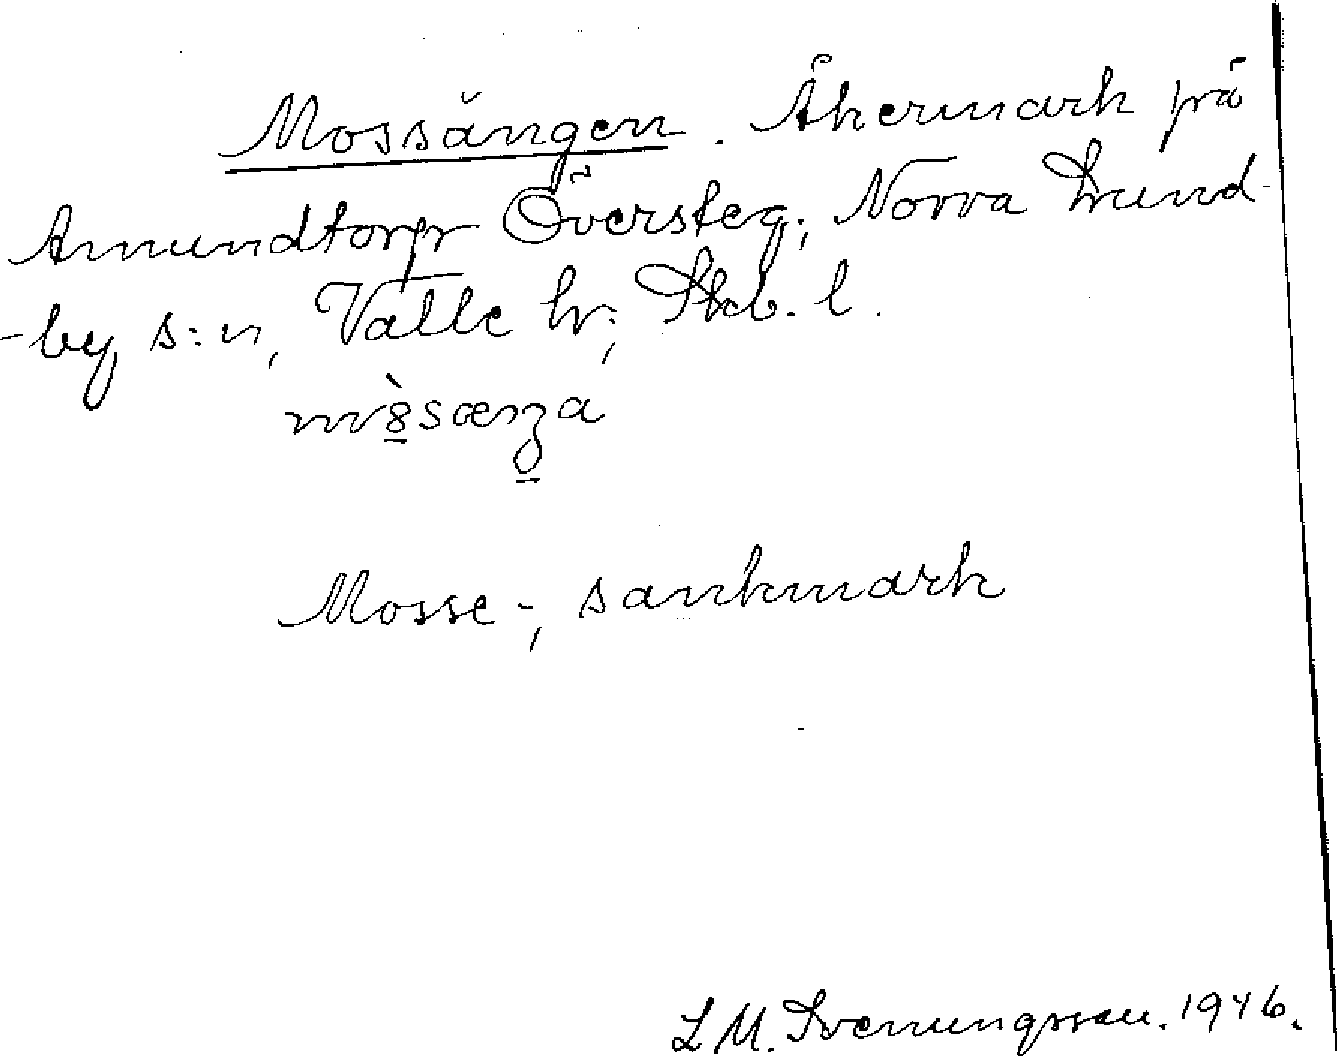 Mossängen. Åkermark på
Amundtorp Översteg, Norra Lund-
-by s:n, Valle hr; Skb. l.
Mosse-, sankmark
L M. Svenungsson. 1946.